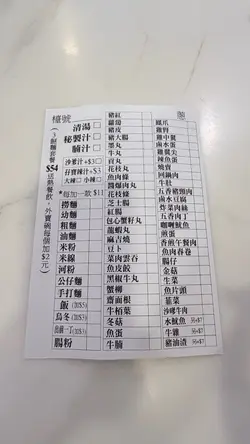 檯號
清湯□
秘製汁□
腩汁□
沙爹汁□+$3□
+$3□
大辣□小辣□
*每加一款$11
撈麵
幼麵
粗麵
油麵
米粉
米線
河粉
公仔麵
手打麵
飯
烏冬
出前一丁
腸粉
(3餸麵套餐
$54
送熱餐飲，外賣碗每個加$2元)
豬紅
蘿蔔
豬皮
豬大腸
墨丸
牛丸
貢丸
花枝丸
魚肉條
醬爆肉丸
豬腩
芝士腸
紅腸
包心蟹籽丸
龍蝦丸
麻吉燒
豆卜
菜肉雲吞
魚皮餃
黑椒牛丸
蟹柳
齋面根
牛栢葉
冬菇
魚蛋
牛腩
鳳爪
雞腎
雞中翼
鹵水蛋
雞翼尖
辣魚蛋
燒賣
回鍋肉
牛肚
五香豬頸肉
鹵水豆腐
炸菜肉絲
五香肉丁
咖喱魷魚
煎蛋
香煎午餐肉
魚肉春卷
腸仔
金菇
生菜
魚片頭
韮菜
沙嗲牛肉
水魷魚
牛雜
豬油渣